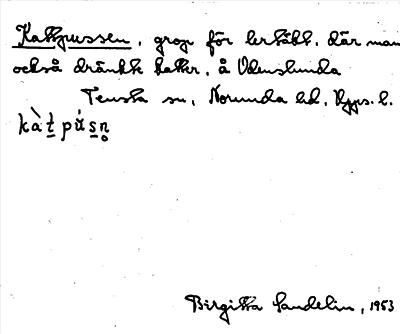 Kattpussen, grop för lertäkt, där man
också dränkte katter, å Odenslunda
Tensta sn, Norunda hd, Upps. l.
kàt̲pús̲n̥
Birgitta Sandelin, 1953